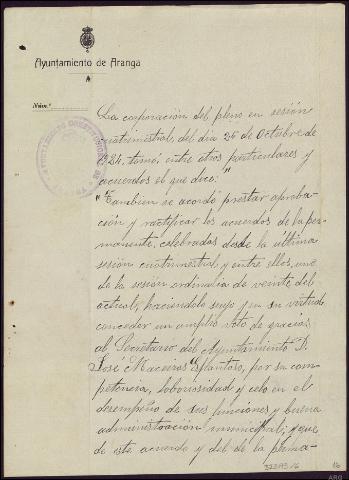 Ayuntamiento de Aranga
Núm.
La corporación del pleno en sesión
cuatrimestral, del dia 26 de Octubre de
1924, tomo, entre otros particulares y
acuerdos el que dice: "
"Tambien se acordó prestar aproba-
ción y ractificar los acuerdos de la per-
manente, celebrados desde la última
sesión cuatrimestral, y entre ellos, uno
de la sesión ordinaria de veinte del
actual, haciendolo suyo y en su virtud
conceder un amplio voto de gracias
al Secretario del Ayuntamiento D.
José Maceiras Esplantoso, por su com-
petencia, laboriosidad y celo en el
desempeño de sus funciones y buena
administración municipal; y que
de este acuerdo y del de la perma-
16